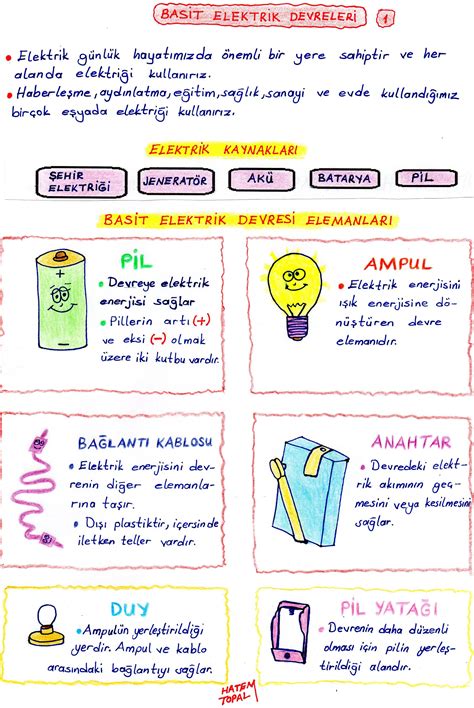 BASİT ELEKTRİK DEVRELERİ 1
• Elektrik günlük hayatımızda önemli bir yere sahiptir ve her
alanda elektriği kullanırız.
• Haberleşme, aydınlatma, eğitim, sağlık, sanayi ve evde kullandığımız
birçok eşyada elektriği kullanırız.
ELEKTRİK KAYNAKLARI
ŞEHİR
ELEKTRİĞİ
JENERATÖR
AKÜ
BATARYA
PİL
BASİT ELEKTRİK DEVRESİ ELEMANLARI
PİL
• Devreye elektrik
enerjisi sağlar
• Pillerin artı (+)
ve eksi (-) olmak
üzere iki kutbu vardır.
+
-
AMPUL
• Elektrik enerjisini
ışık enerjisine dö-
nüştüren devre
elemanıdır.
BAĞLANTI KABLOSU
• Elektrik enerjisini dev-
renin diğer elemanla-
rına taşır.
• Dışı plastiktir, içersinde
iletken teller vardır.
ANAHTAR
• Devredeki elekt-
rik akımının geç-
mesini veya kesilmesini
sağlar.
DUY
• Ampulün yerleştirildiği
yerdir. Ampul ve kablo
arasındaki bağlantıyı sağlar.
PİL YATAĞI
• Devrenin daha düzenli
olması için pilin yerleş-
tirildiği alandır.
HATEM
TOPAL